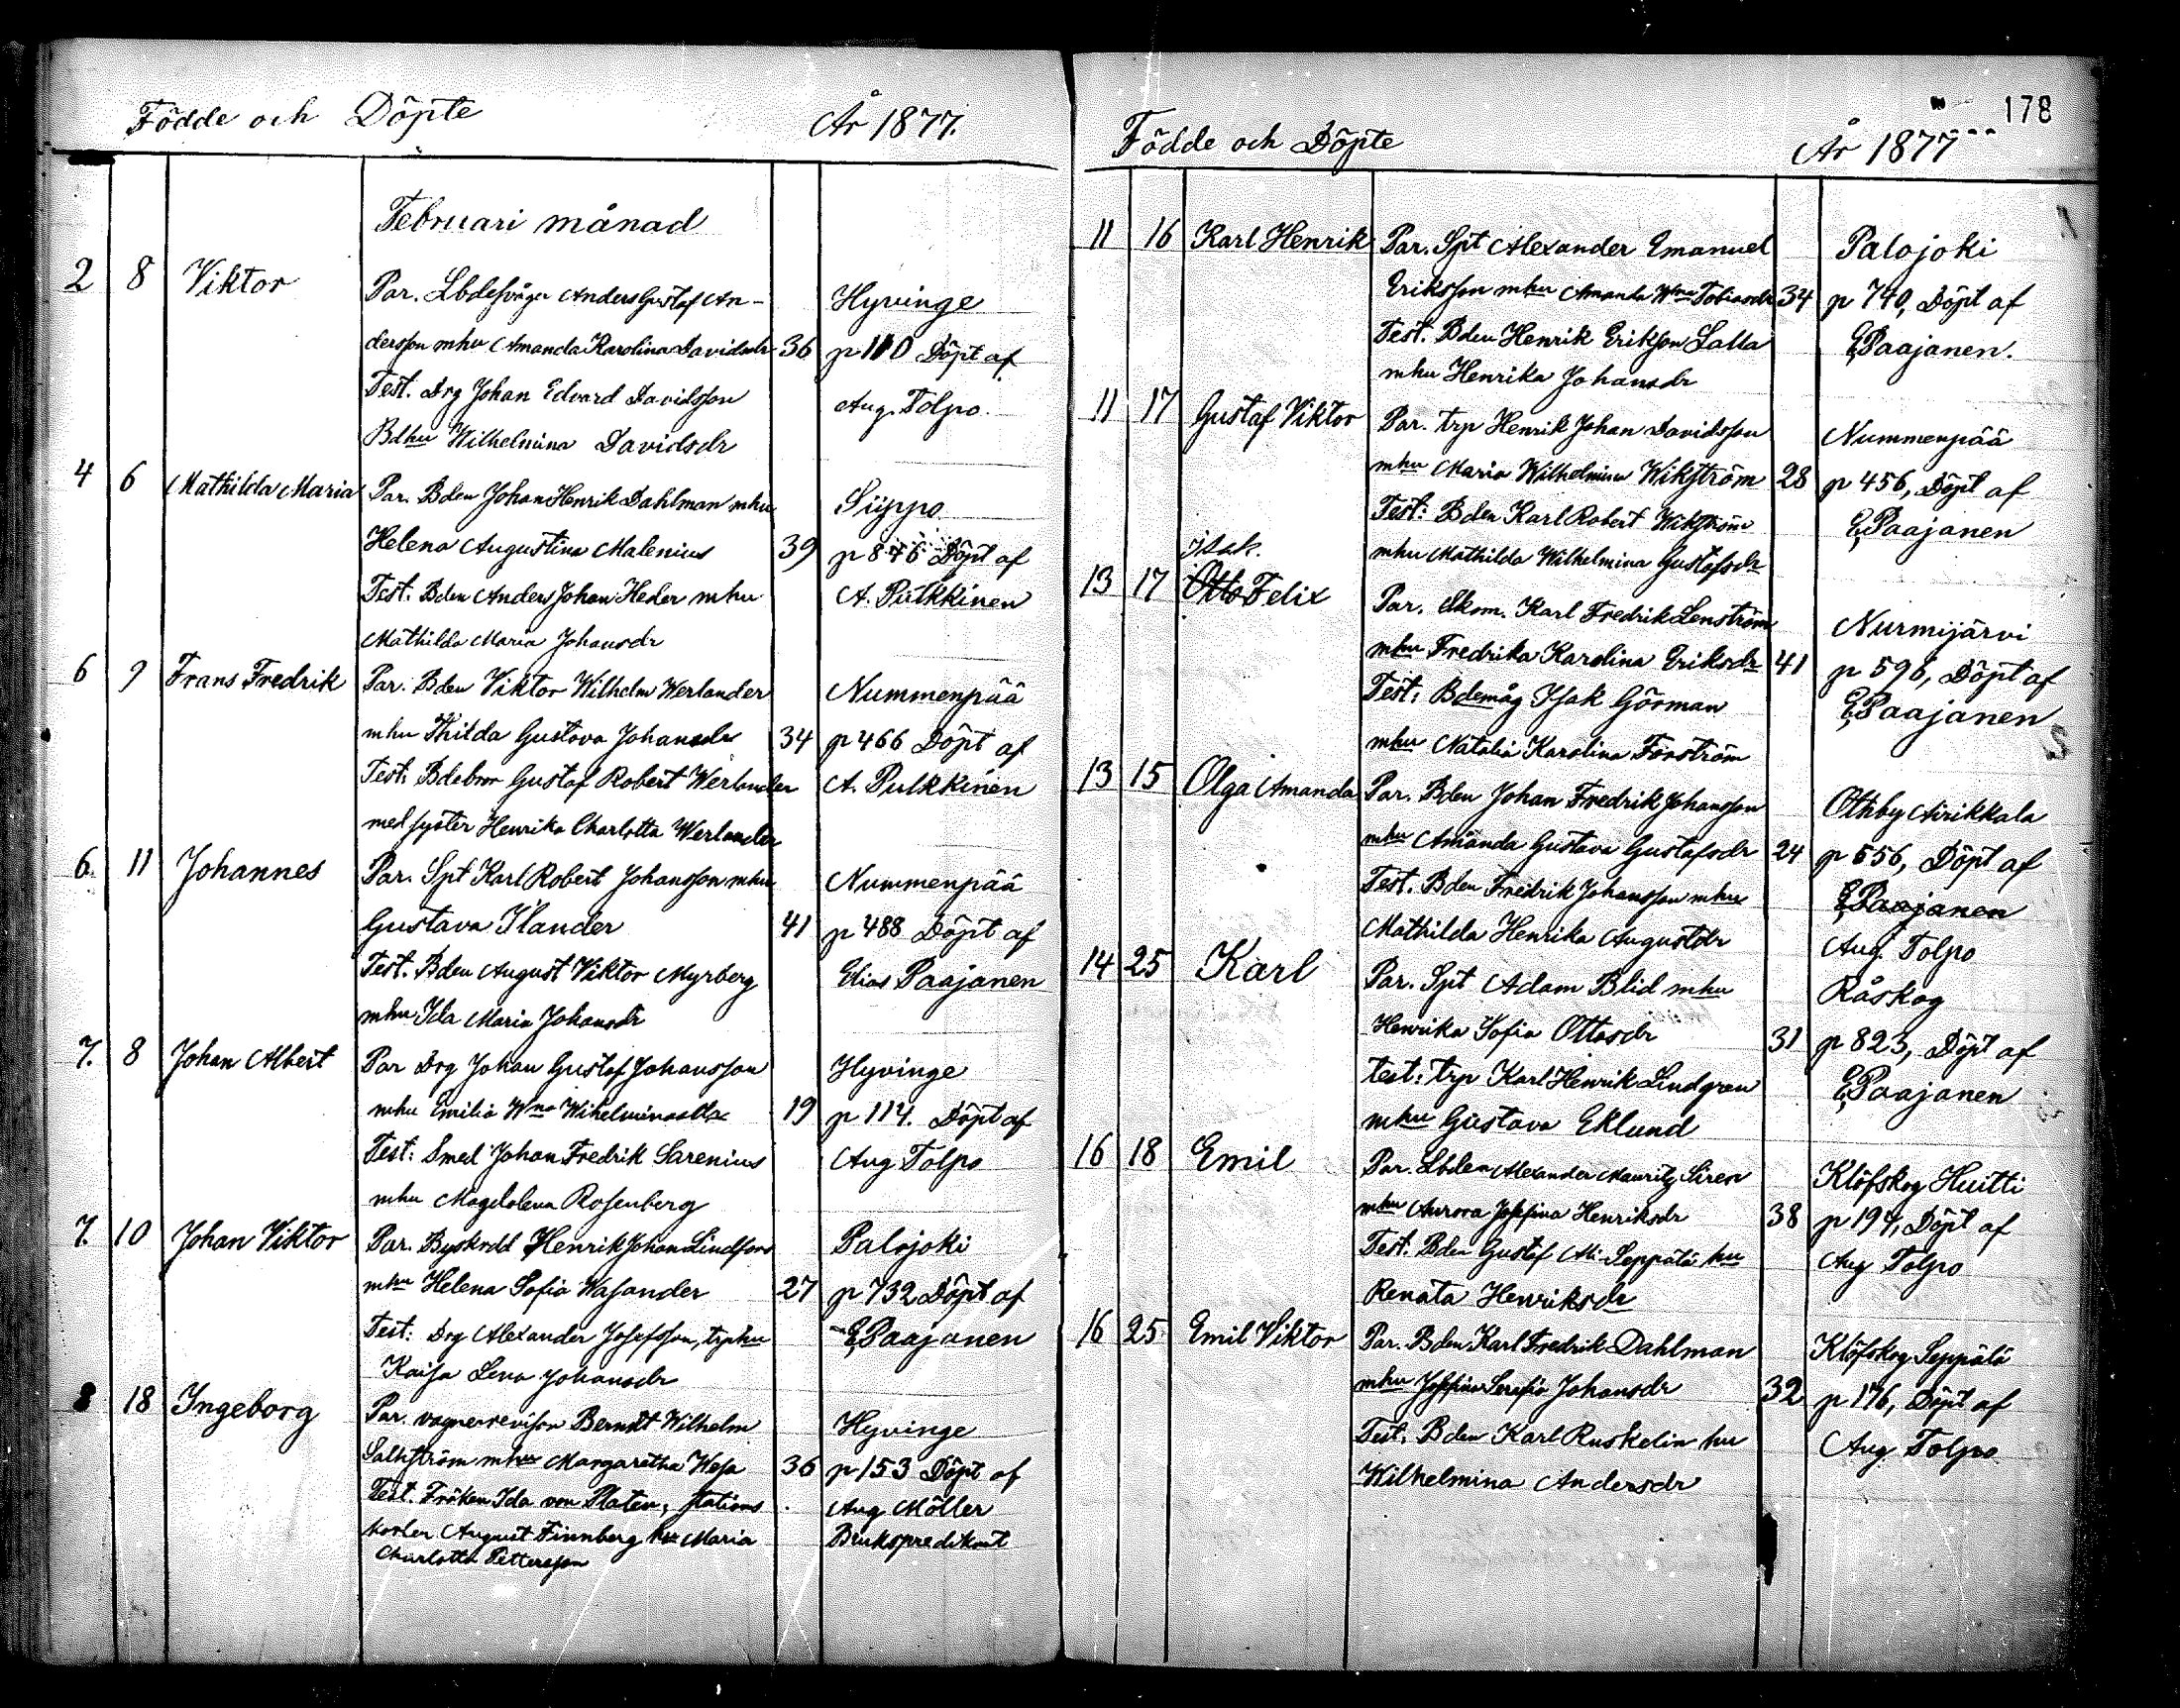 Födde och Döpte År 1877.
Februari månad
2 8 Viktor Par. Lbdesvåger Anders Gustaf An- Hyvinge
dersson mhu Amanda Karolina Davidsdr 36 p 110 Döpt af
Test. Drg Johan Edvard Davidsson Aug. Tolpo.
Bdhu Wilhelmina Davidsdr
4 6 Mathilda Maria Par. Bden Johan Henrik Dahlman mhu Siippo
Helena Augustina Malenius 39 p 846 Döpt af
Test: Bden Anders Johan Heder mhu A. Pulkkinen
Mathilda Maria Johansdr
6 9 Frans Fredrik Par. Bden Viktor Wilhelm Werlander Nummenpää
mhu Thilda Gustava Johansdr 34 p 466 Döpt af
Test: Bdebror Gustaf Robert Werlander A. Pulkkinen
med syster Henrika Charlotta Werlander
6. 11 Johannes Par. Spt Karl Robert Johansson mhu Nummenpää
Gustava Ilander 41 p 488 Döpt af
Test. Bden August Viktor Myrberg Elias Paajanen
mhu Ida Maria Johansdr
7. 8 Johan Albert Par Drg Johan Gustaf Johansson Hyvinge
mhu Emilia Wna 19 p 114. Döpt af
Test: Smed Johan Fredrik Sarenius Aug Tolpo
mhu Magdalena Rosenberg
7. 10 Johan Viktor Par. Byskrdd Henrik Johan Lindfors Palojoki
mhu Helena Sofia Wasander 27 p 732 Döpt af
Test: Drg Alexander Josefsson, trphu E Paajanen
Kaisa Lena Johansdr
8 18 Ingeborg Par. vagnsrevisor Berndt Wilhelm Hyvinge
Salkström mhu Margaretha Wesa 36 p 153 Döpt af
Test. Fröken Ida von Platen, stations Aug Möller
karlen August Finnberg hu Maria Brukspredikant
Charlotta Pettersson
178
Födde och Döpte År 1877
11 16 Karl Henrik Par. Spt Alexander Emanuel Palojoki
Eriksson mhu Amanda Wna Tobiasdr 34 p 740, Döpt af
Test. Bden Henrik Eriksson Lalla E Paajanen.
mhu Henrika Johansdr
11 17 Gustaf Viktor Par. trp Henrik Johan Davidsson Nummenpää
mhu Maria Wilhelmina Wikström 28 p 456, Döpt af
Test: Bden Karl Robert Wikström E Paajanen
Isak. mhu Mathilda Wilhelmina Gustafsdr
13 17 Otto Felix Par. Skom. Karl Fredrik Lenström Nurmijärvi
mhu Fredrika Karolina Eriksdr 41 p 596, Döpt af
Test: Bdemåg Isak Görman E Paajanen
mhu Natalia Karolina Forström
13 15 Olga Amanda Par. Bden Johan Fredrik Johansson Othby Airikkala
mhu Amanda Gustava Gustafsdr 24 p 556, Döpt af
Test. Bden Fredrik Johansson mhu E Paajanen
Mathilda Henrika Augustdr Aug. Tolpo
14 25 Karl Par. Spt Adam Blid mhu Råskog
Henrika Sofia Ottosdr 31 p 823, Döpt af
test: trp Karl Henrik Lindgren E Paajanen
mhu Gustava Eklund
16 18 Emil Par. Lbden Alexander Mauritz Siren Klöfskog Huitti
mhu Aurora Josefina Henriksdr 38 p 194, Döpt af
Test. Bden Gustaf Ali-Seppälä hu Aug Tolpo
Renata Henriksdr
16 25 Emil Viktor Par. Bden Karl Fredrik Dahlman Klöfskog Seppälä
mhu Josefina Serafia Johansdr 32 p 176, Döpt af
Test. Bden Karl Ruskelin hu Aug. Tolpo.
Wilhelmina Andersdr